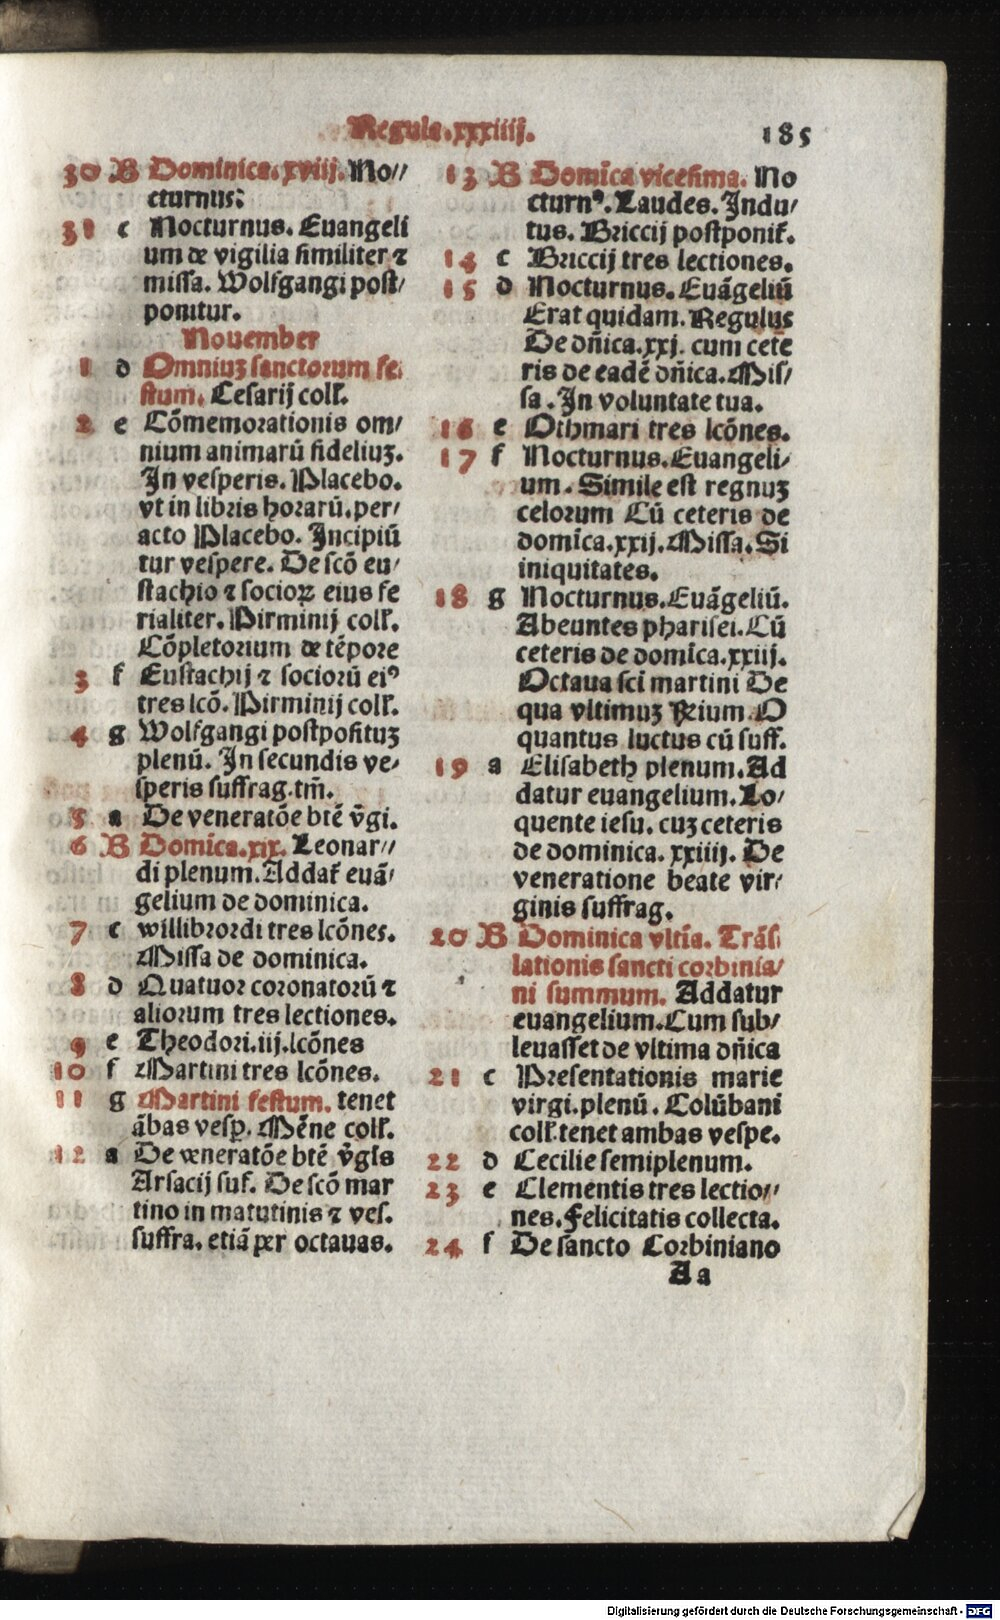 Regula.xxxiiij.
185
30 B Dominica.xviij. No//
cturnus:
31 c Nocturnus. Euangeli
um de vigilia similiter ⁊
missa. Wolfgangi post/
ponitur.
Nouember
1 d Omniuʒ sanctorum fe/
stum. Cesarij coll̄.
2 e Cōmemorationis om/
nium animarū fideliuʒ.
In vesperis. Placebo.
vt in libris horarū. per/
acto Placebo. Incipiū
tur vespere. De scō eu/
stachio ⁊ socioꝝ eius fe
rialiter. Pirminij coll̄.
Cōpletorium de tēpore
3 f Eustachij ⁊ sociorū eiꝰ
tres lcō. Pirminij coll̄.
4 g Wolfgangi postposituʒ
plenū. In secundis ve/
speris suffrag.tm̄.
5 a De veneratōe btē v̄gi.
6 B Domīca.xix. Leonar//
di plenum. Addat̄ euā/
gelium de dominica.
7 c willibrordi tres lcōnes.
Missa de dominica.
8 d Quatuor coronatorū ⁊
aliorum tres lectiones.
9 e Theodori.iij.lcōnes
10 f Martini tres lcōnes.
11 g Martini festum. tenet
ābas vesꝑ. Mēne coll̄.
12 a De veneratōe btē v̄gīs
Arsacij suf. De scō mar
tino in matutinis ⁊ ves.
suffra. etiā per octauas.
13 B Domīca vicesima. No
cturnꝰ. Laudes. Indu/
tus. Briccij postponit̄.
14 c Briccij tres lectiones.
15 d Nocturnus. Euāgeliū
Erat quidam. Regulus
De dn̄ica.xxj. cum cete
ris de eadē dn̄ica. Mis/
sa. In voluntate tua.
16 e Othmari tres lcōnes.
17 f Nocturnus. Euangeli/
um. Simile est regnuʒ
celorum Cū ceteris de
domīca.xxij. Missa. Si
iniquitates.
18 g Nocturnus. Euāgeliū.
Abeuntes pharisei. Cū
ceteris de domīca.xxiij.
Octaua sci martini De
qua vltimuʒ ℟ium. O
quantus luctus cū suff.
19 a Elisabeth plenum. Ad
datur euangelium. Lo/
quente iesu. cuʒ ceteris
de dominica. xxiiij. De
veneratione beate vir/
ginis suffrag.
20 B Dominica vltīa. Trās
lationis sancti corbinia/
ni summum. Addatur
euangelium. Cum sub/
leuasset de vltima dn̄ica
21 c Presentationis marie
virgi.plenū. Colūbani
coll̄.tenet ambas vespe.
22 d Cecilie semiplenum.
23 e Clementis tres lectio//
nes. Felicitatis collecta.
24 f De sancto Corbiniano
Aa
Digitalisierung gefördert durch die Deutsche Forschungsgemeinschaft - DFG